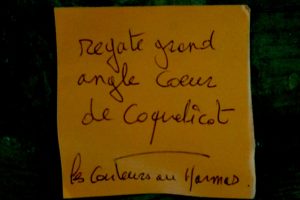 regate grand
angle Coeur
de Coquelicot
les Couleurs au Harmas.